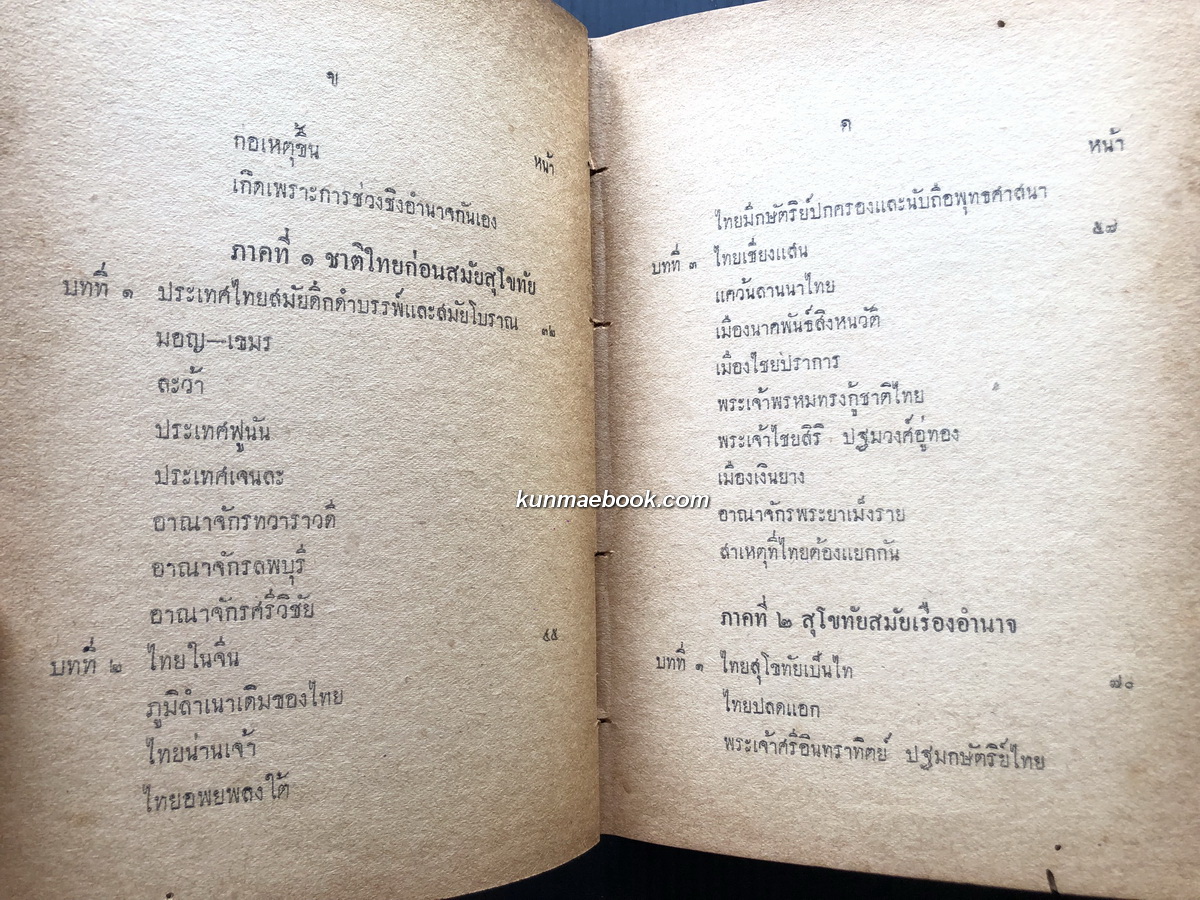 ข
หน้า
ก่อเหตุขึ้น
เกิดเพราะการช่วงชิงอำนาจกันเอง
ภาคที่ ๑ ชาติไทยก่อนสมัยสุโขทัย
บทที่ ๑ ประเทศไทยสมัยดึกดำบรรพ์และสมัยโบราณ ๓๒
มอญ—เขมร
ละว้า
ประเทศฟูนัน
ประเทศเจนละ
อาณาจักรทวาราวดี
อาณาจักรลพบุรี
อาณาจักรศรีวิชัย
บทที่ ๒ ไทยในจีน ๔๕
ภูมิลำเนาเดิมของไทย
ไทยน่านเจ้า
ไทยอพยพลงใต้
ค
หน้า
ไทยมีกษัตริย์ปกครองและนับถือพุทธศาสนา
บทที่ ๓ ไทยเชียงแสน ๕๘
แคว้นลานนาไทย
เมืองนาคพันธ์สิงหนวัติ
เมืองไชยปราการ
พระเจ้าพรหมทรงกู้ชาติไทย
พระเจ้าไชยสิริ ปฐมวงศ์อู่ทอง
เมืองเงินยาง
อาณาจักรพระยาเม็งราย
สาเหตุที่ไทยต้องแยกกัน
ภาคที่ ๒ สุโขทัยสมัยเรืองอำนาจ
บทที่ ๑ ไทยสุโขทัยเป็นไท ๗๐
ไทยปลดแอก
พระเจ้าศรีอินทราทิตย์ ปฐมกษัตริย์ไทย
kunmaebook.com